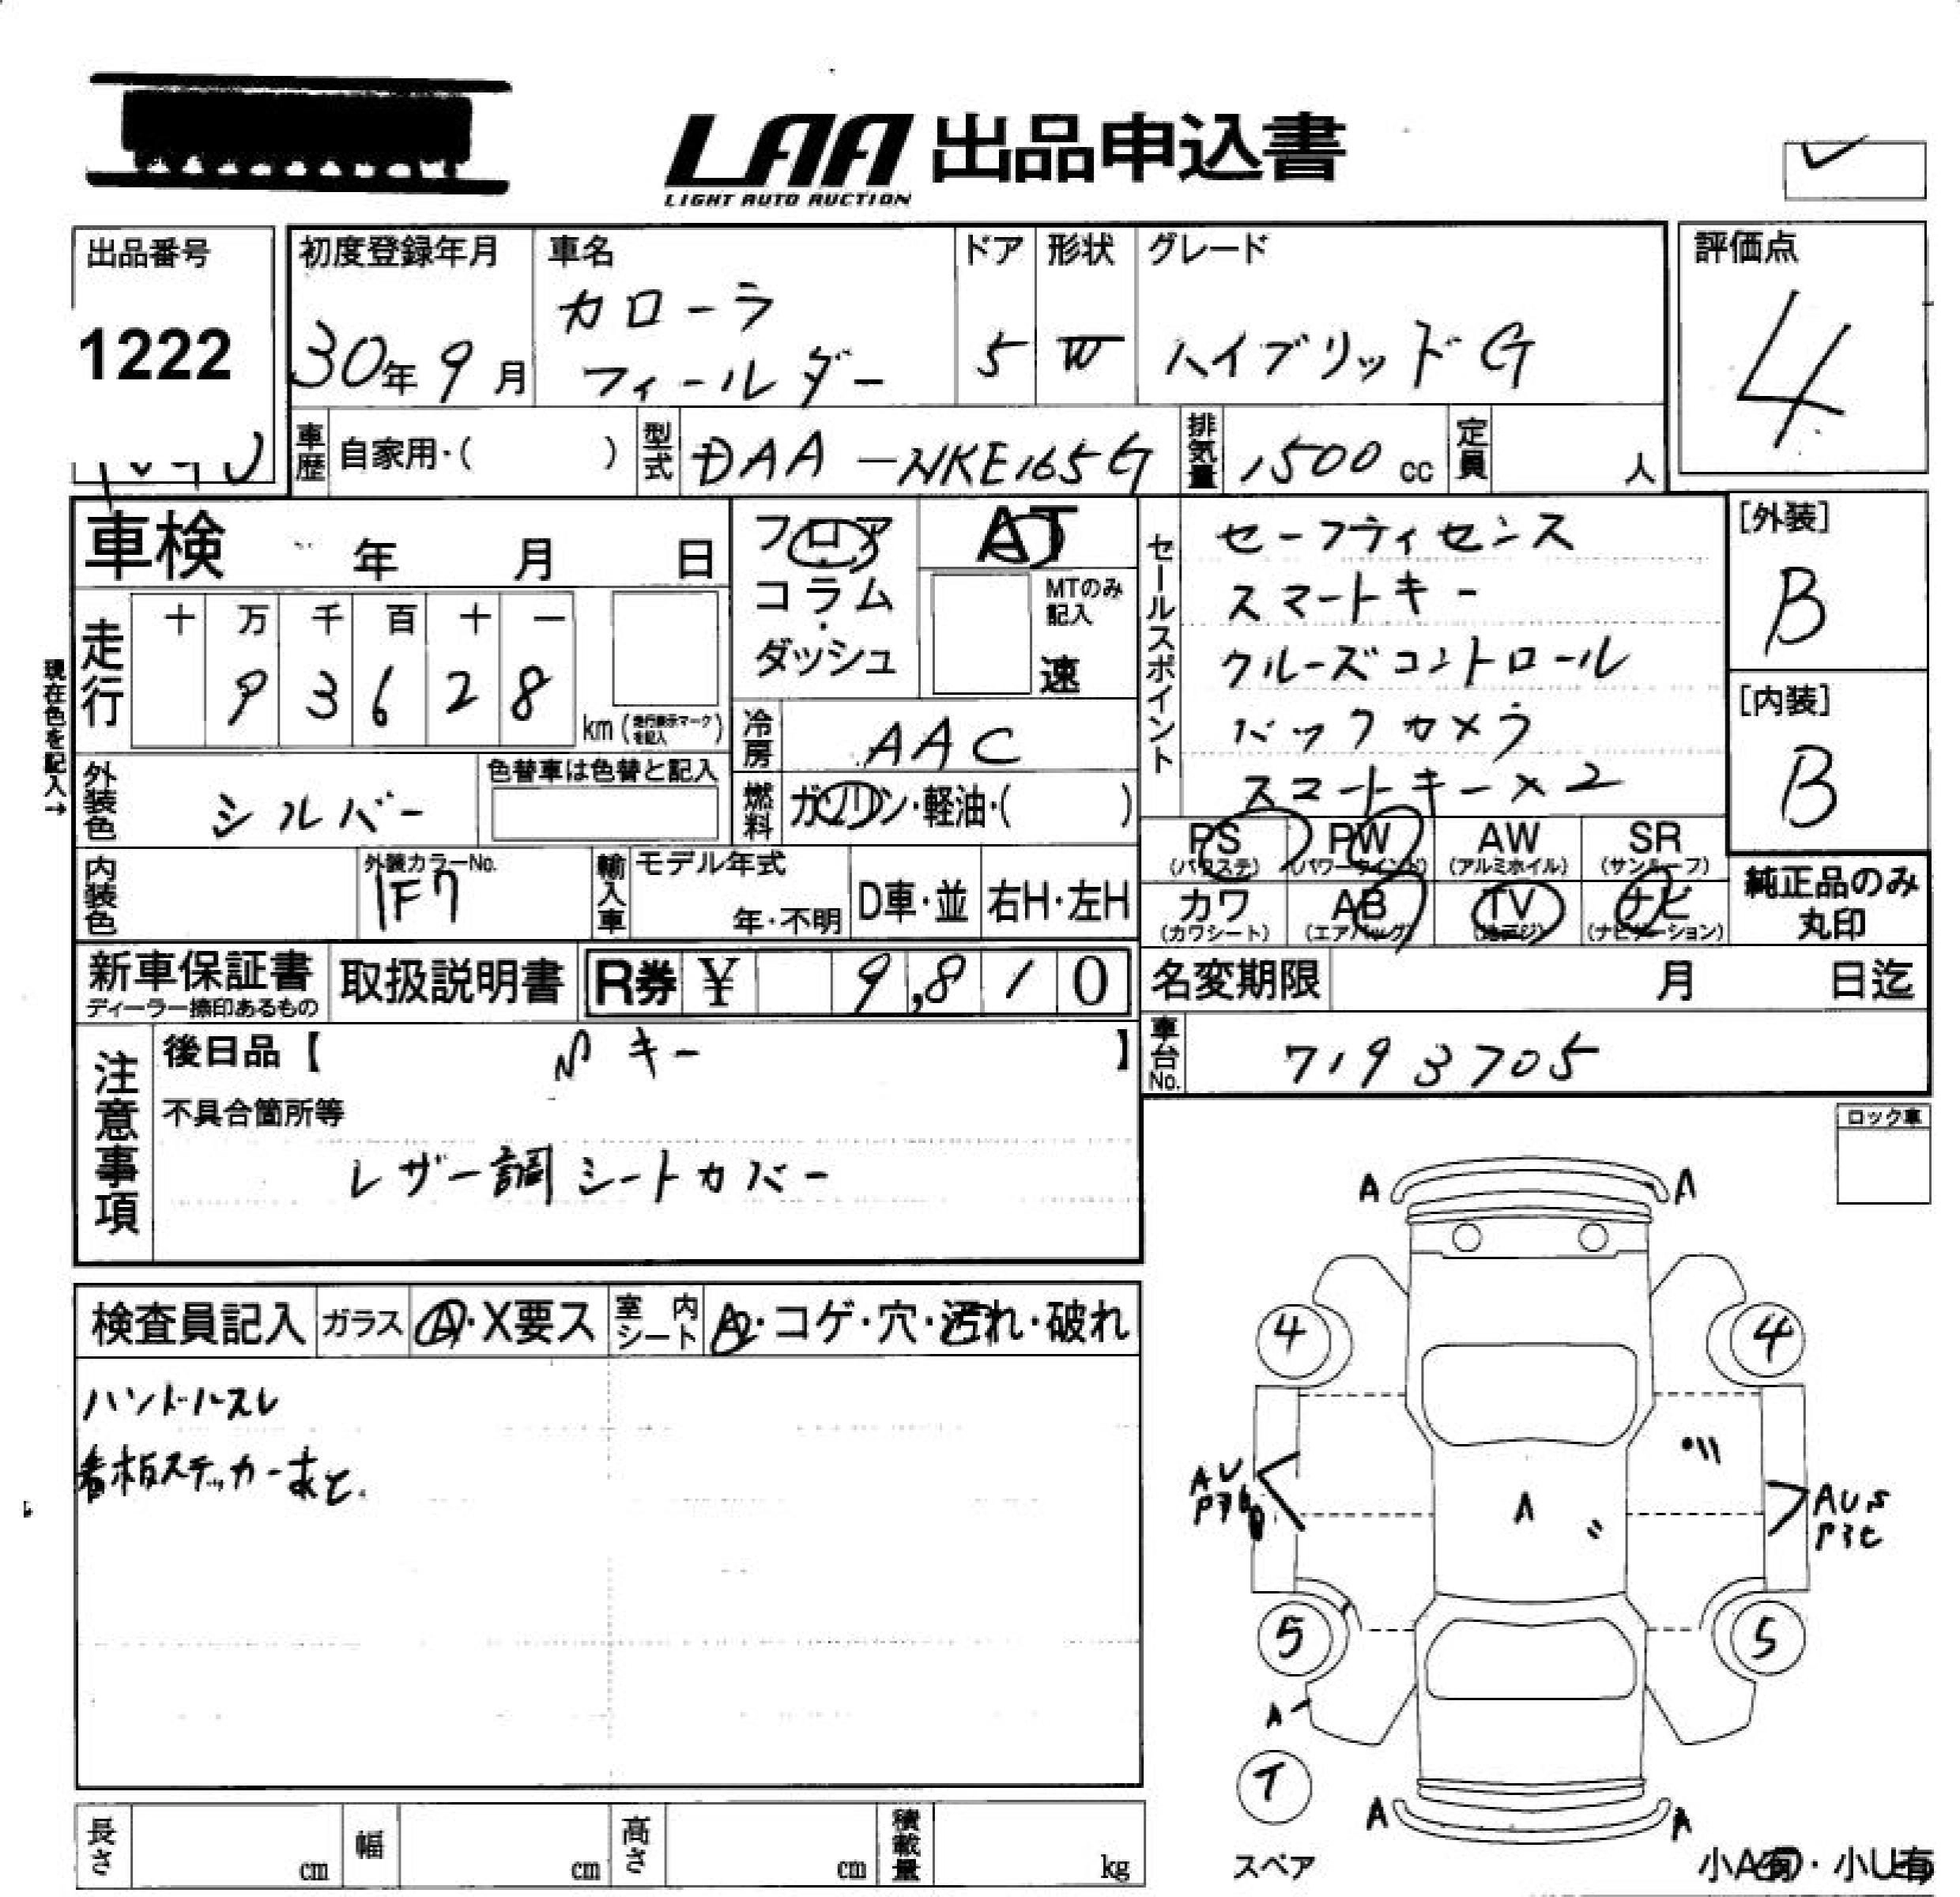 LAA 出品申込書
LIGHT AUTO AUCTION
出品番号
1222
初度登録年月
30年 9月
車名
カローラ
フィールダー
ドア
5
形状
W
グレード
ハイブリッド G
評価点
4
車歴 自家用・( )
型式 DAA-NKE165G
排気量 1500 cc
定員 人
車検 年 月 日
フロア
コラム
・
ダッシュ
AT
MTのみ
記入
速
セールスポイント
セーフティセンス
スマートキー
クルーズコントロール
バックカメラ
スマートキー×2
[外装]
B
[内装]
B
現在色を記入→
走行
十 万 千 百 十 一
9 3 6 2 8
km (走行表示マークを記入)
冷房 AAC
外装色 シルバー
色替車は色替と記入
燃料 ガソリン・軽油・( )
PS PW AW SR
(パワステ) (パワーウインド) (アルミホイル) (サンルーフ)
カワ AB TV ナビ
(カワシート) (エアバッグ) (地デジ) (ナビゲーション)
純正品のみ
丸印
内装色
外装カラーNo.
1F7
輸入車
モデル年式
年・不明
D車・並
右H・左H
新車保証書
ディーラー捺印あるもの
取扱説明書
R券 ¥ 9,810
名変期限 月 日迄
車台No. 7193705
注意事項
後日品【 キー 】
不具合箇所等
レザー調シートカバー
ロック車
検査員記入 ガラス A・X要ス 室内シート A・コゲ・穴・汚れ・破れ
ハンドルスレ
看板ステッカーあと
A A
4 4
AU
A
AUS
5 5
A
T
スペア
A A
小A有・小U有
長さ cm 幅 cm 高さ cm 積載量 kg